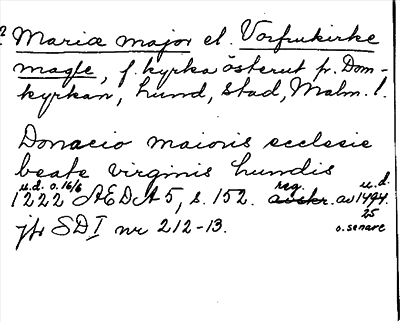 Mariæ major el. Vorfrukirke
magle, f. kyrka österut fr. Dom-
kyrkan, Lund, stad, Malm. l.
Donacio maioris ecclesie
beate virginis Lundis
u.d. o. 16/6 reg. u.d.
1222 ÆDA 5, s. 152. avskr. av 1494.
25
jfr SD I nr 212-13. o. senare